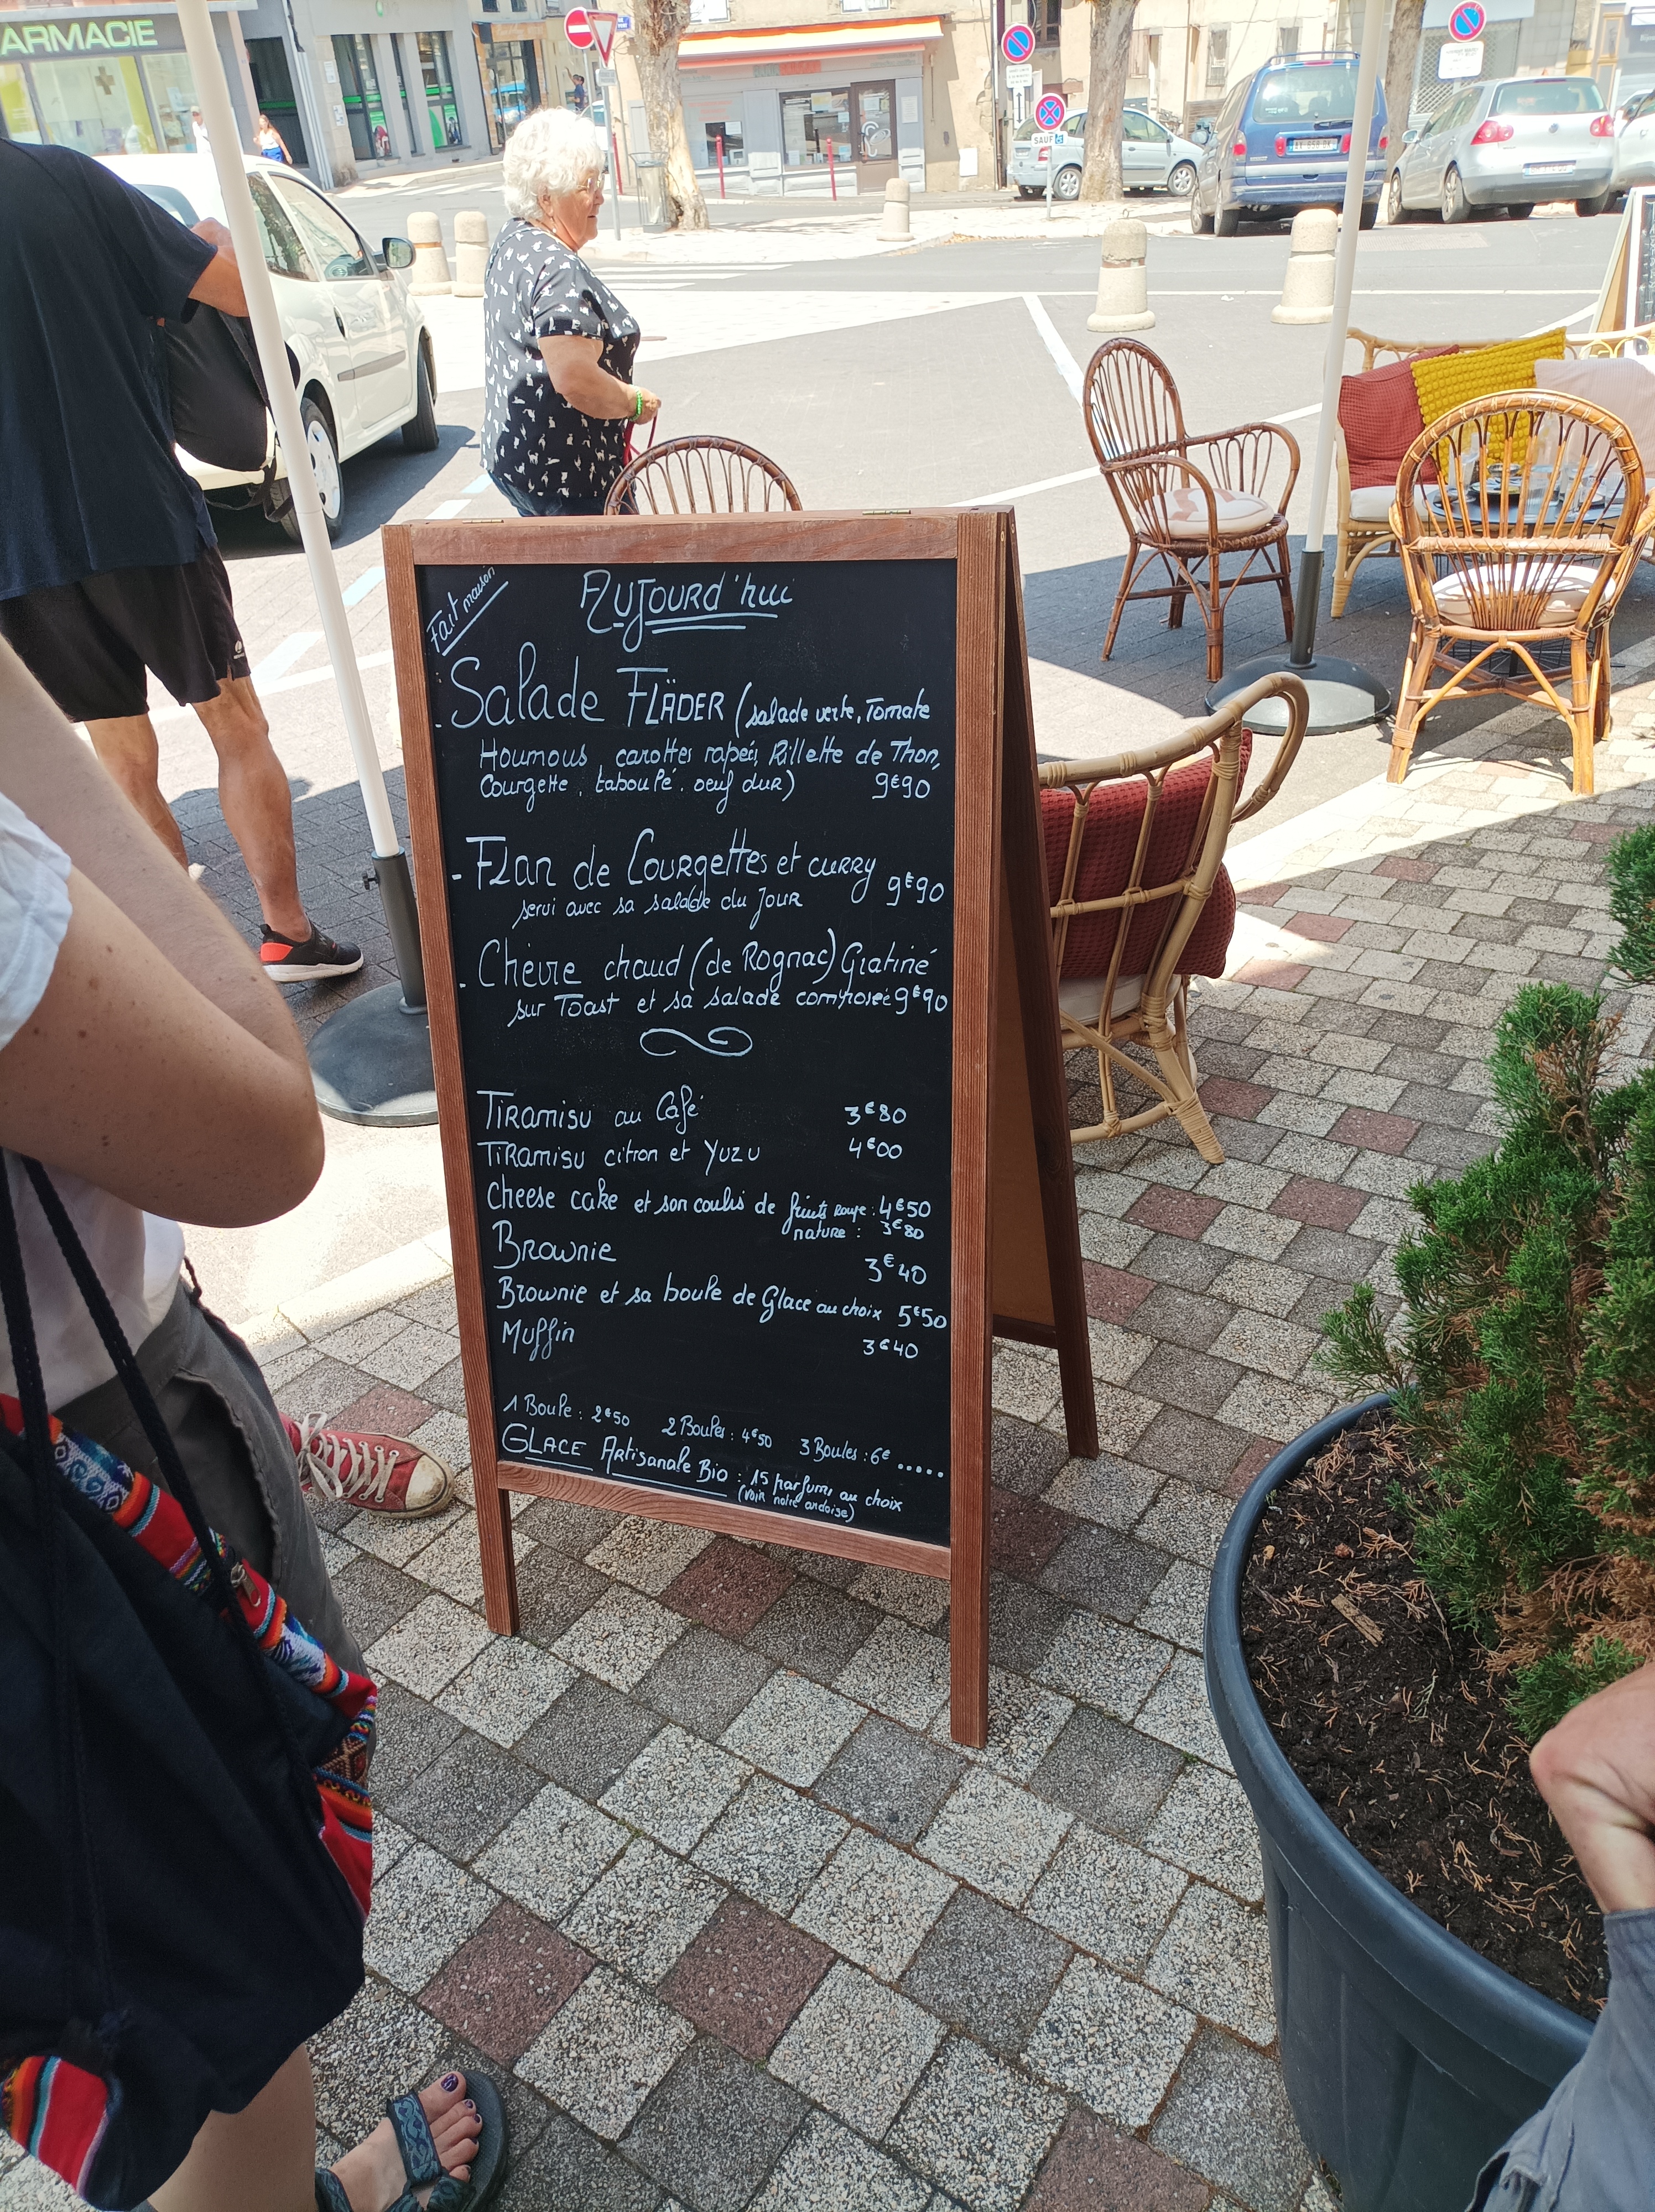 ARMACIE
SAUF
AX-658-DK
Fait maison
Aujourd'hui
- Salade FLÄDER (salade verte, Tomate
Houmous carottes rapées, Rillette de Thon,
Courgette, taboulé, oeuf dur) 9€90
- Flan de Courgettes et curry 9€90
servi avec sa salade du Jour
- Chèvre chaud (de Rognac) Gratiné
sur Toast et sa salade composée 9€90
Tiramisu au Café 3€80
Tiramisu citron et Yuzu 4€00
Cheese cake et son coulis de fruits rouge : 4€50
nature : 3€80
Brownie 3€40
Brownie et sa boule de Glace au choix 5€50
Muffin 3€40
1 Boule : 2€50 2 Boules : 4€50 3 Boules : 6€ .....
GLACE Artisanale Bio : 15 parfums au choix
(voir notre ardoise)